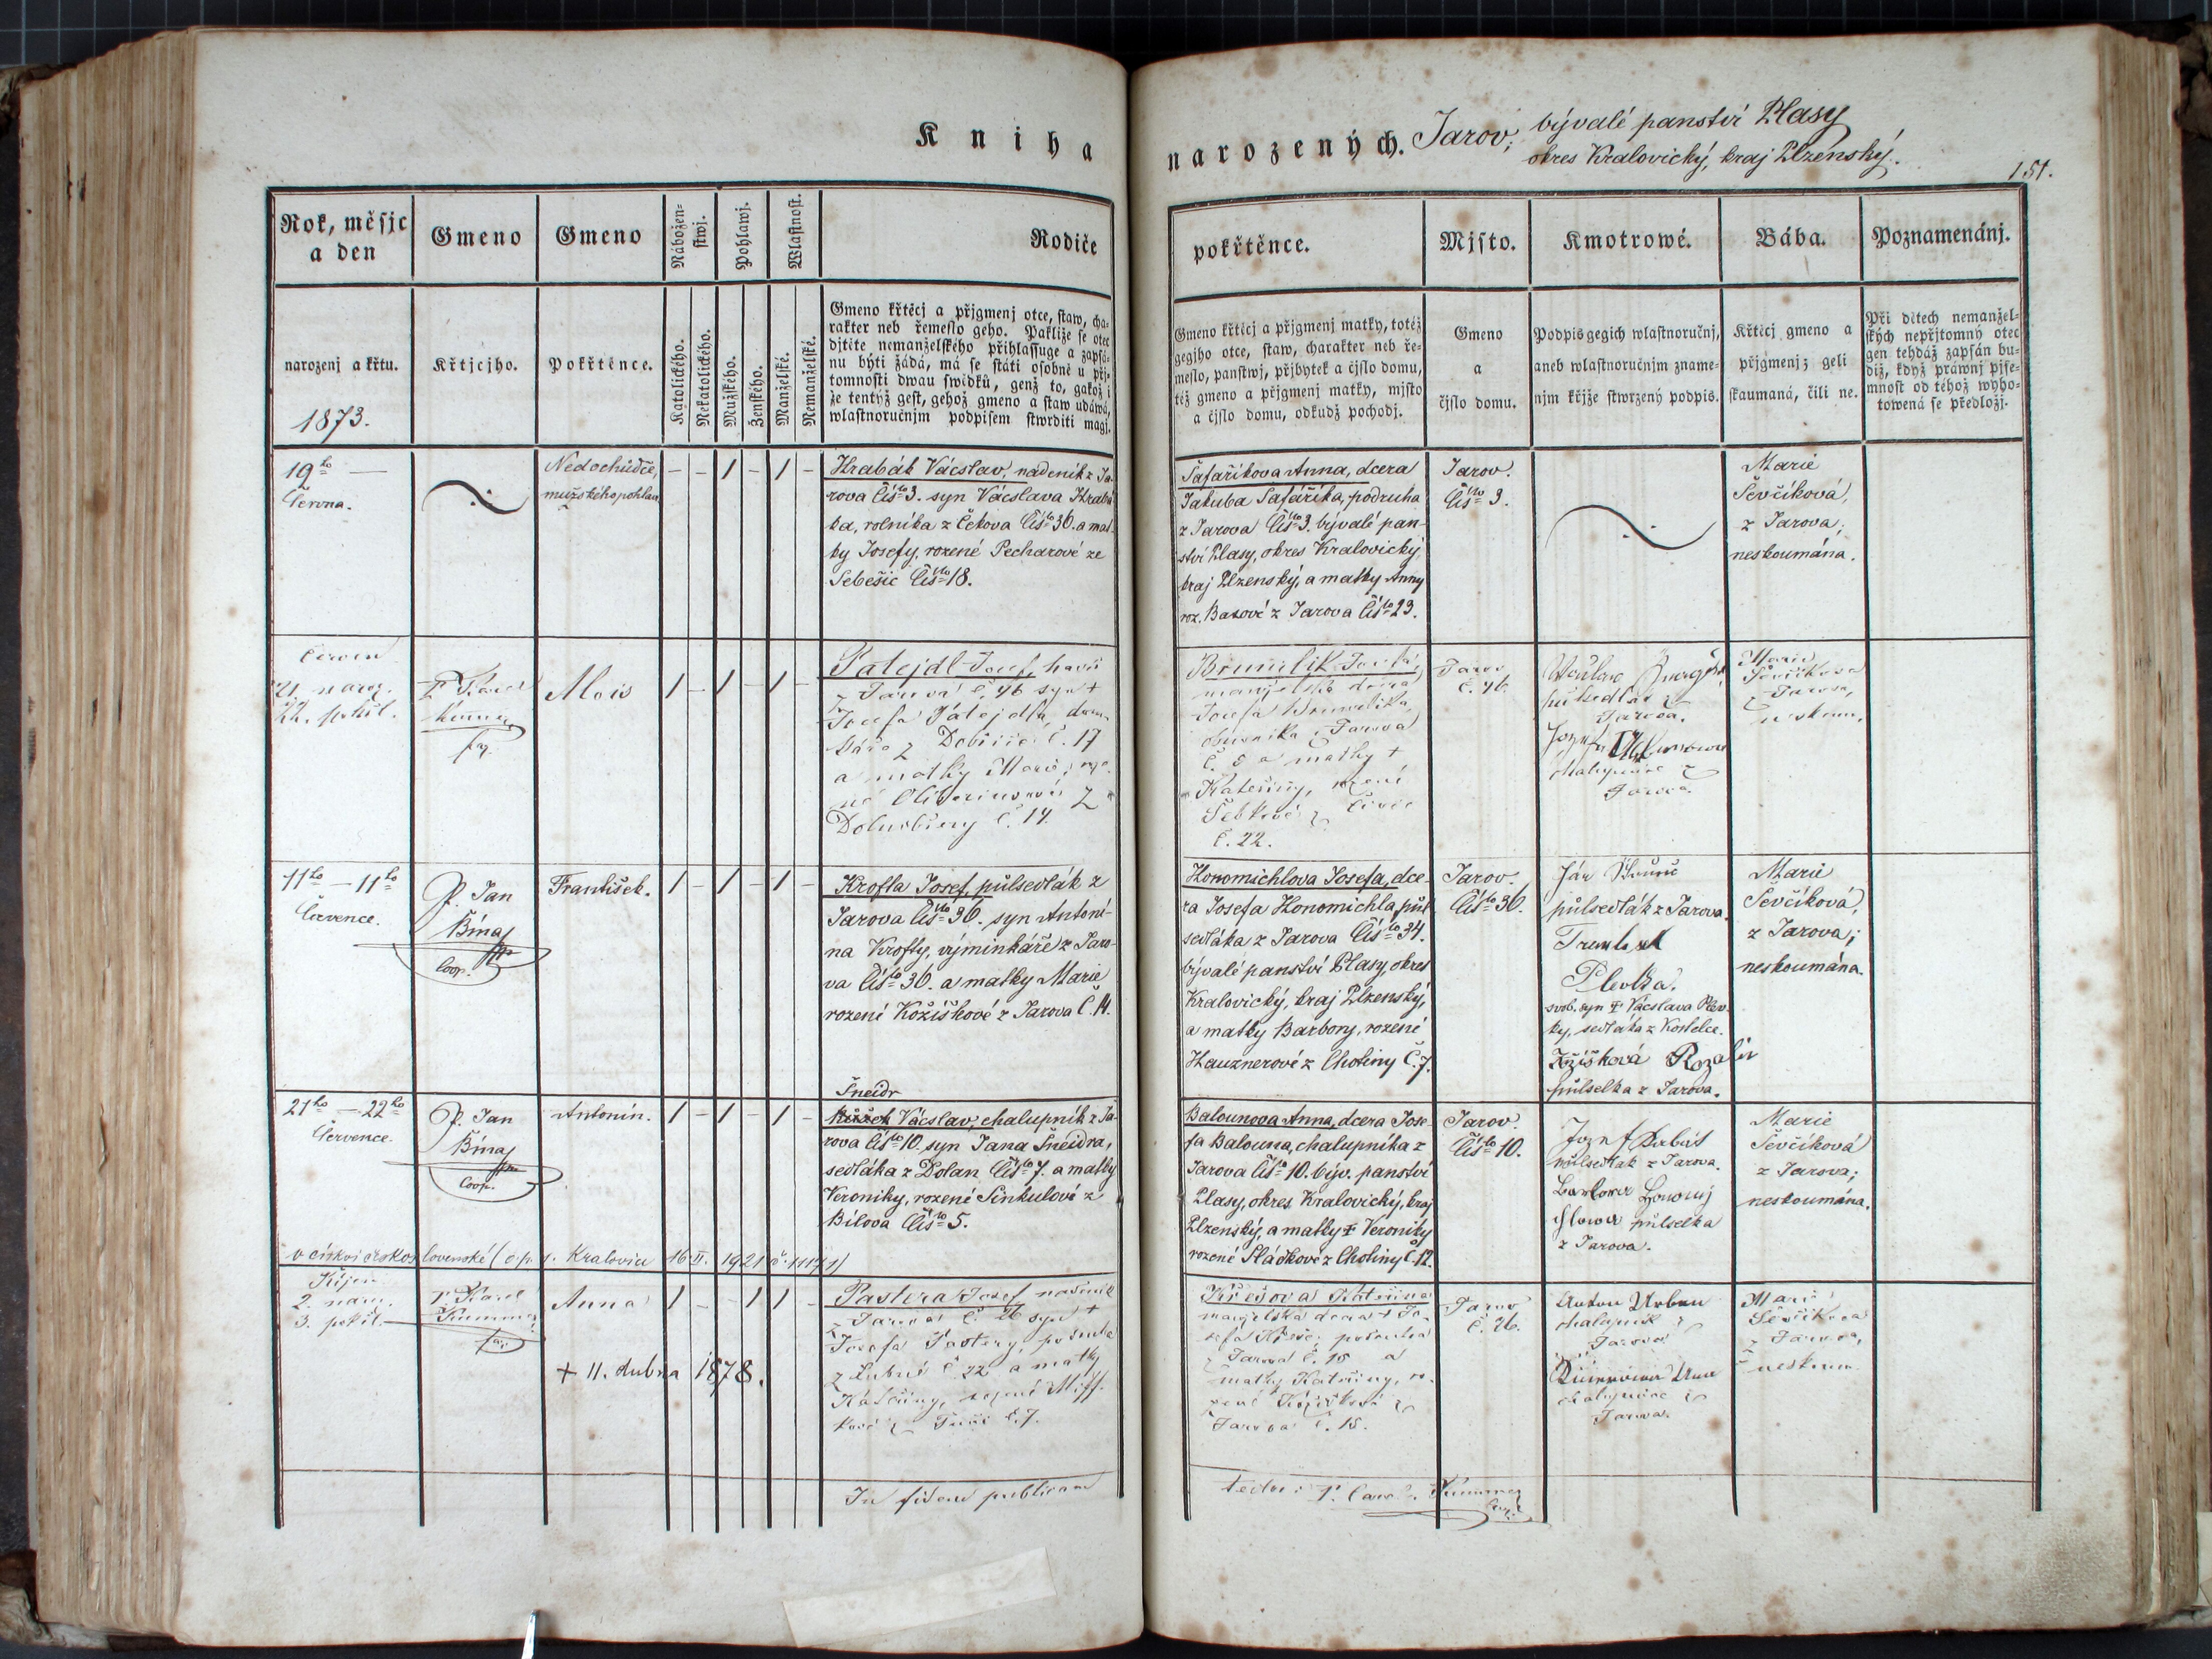 Kniha
narozených. Jarov, bývalé panství Plasy
okres Kralovický, kraj Plzenský.
151.
Rok, měsjc
a den
narozenj a křtu.
1873.
Gmeno
Křtjcjho.
Gmeno
Pokřtěnce.
Náboženstwj.
Katolického.
Nekatolického.
Pohlawj.
Mužského.
Ženského.
Wlastnost.
Manželské.
Nemanželské.
Rodiče
Gmeno křtěcj a přjgmenj otce, staw, cha-
rakter neb řemeslo geho. Pakliže se otec
djtěte nemanželského přihlassuge a zapsá-
nu býti žádá, má se státi osobně u přj-
tomnosti dwau swědků, genž to, gakož i
že tentýž gest, gehož gmeno a staw udáwá,
wlastnoručnjm podpisem stwrditi magj.
pokřtěnce.
Gmeno křticj a přjgmenj matky, totéž
gegjho otce, staw, charakter neb ře-
meslo, panstwj, přjbytek a čjslo domu,
též gmeno a přjgmenj matky, mjsto
a čjslo domu, odkudž pochodj.
Mjsto.
Gmeno
a
čjslo domu.
Kmotrowé.
Podpis gegich wlastnoručnj,
aneb wlastnoručnjm zname-
njm křjže stwrzený podpis.
Bába.
Křticj gmeno a
přjgmenj; geli
skaumaná, čili ne.
Poznamenánj.
Při dětech nemanžel-
ských nepřjtomný otec
gen tehdáž zapsán bu-
diž, když práwnj pjse-
mnost od téhož wyho-
towená se předložj.
19ho —
Června.
Nedochůdče,
mužského pohlaví
- - 1 - 1 -
Hrabák Vácslav, nádeník z Ja-
rova Čís. 3. syn Vácslava Hrabá-
ka, rolníka z Čekova Čís. 36. a mat-
ky Josefy, rozené Pecharové ze
Sebešic Čís. 18.
Šafaříkova Anna, dcera
Jakuba Šafaříka, podruha
z Jarova Čís. 3. bývalé pan-
ství Plasy, okres Kralovický
kraj Plzenský, a matky Anny
roz. Baxové z Jarova Čís. 23.
Jarov.
Čís. 3.
Marie
Ševčíková,
z Jarova;
neskoumána.
Červen
21. naroz.
22. pokřt.
P. Karel
Kummer
far.
Alois
1 - 1 - 1 -
Patejdl Josef, havíř
z Jarova č. 46 syn +
Josefa Patejdla, dom-
káře z Dobříče č. 17
a matky Marie, roze-
né z
Dolnobíny č. 14.
Josefa,
manželská dcera
Josefa
z Jarova
č. 5 a matky +
Kateřiny, rozené
č. 22.
Jarov
č. 46.
půlsedlák z
Jarova.
chalupnice z
Jarova.
Marie
Ševčíkova
z Jarova,
neskoum.
11ho — 11ho
Července.
P. Jan
Bína
Coop.
František.
1 - 1 - 1 -
Krofta Josef, půlsedlák z
Jarova Čís. 36. syn Antoní-
na Krofty, výminkáře z Jaro-
va Čís. 36. a matky Marie
rozené Kožíškové z Jarova Č. 14.
Honomichlova Josefa, dce-
ra Josefa Honomichla, půl-
sedláka z Jarova Čís. 34.
bývalé panství Plasy, okres
Kralovický, kraj Plzenský,
a matky Barbory, rozené
Hauznerové z Chotiny Č. 7.
Jarov.
Čís. 36.
Ján
půlsedlák z Jarova.
Plevka.
svob. syn + Vácslava Plev-
ky, sedláka z Kostelce.
Rozalie
půlselka z Jarova.
Marie
Ševčíková,
z Jarova;
neskoumána.
21ho — 22ho
Července.
P. Jan
Bína
Coop.
Antonín.
1 - 1 - 1 -
Šneidr
Vácslav, chalupník z Ja-
rova Čís. 10. syn Jana Šneidra,
sedláka z Dolan Čís. 7. a matky
Veroniky, rozené Sinkulové z
Bílova Čís. 5.
v církvi československé (o.p.s. Kralovice 16 II. 1921 č. 11171)
Balounova Anna, dcera Jose-
fa Balouna, chalupníka z
Jarova Čís. 10. býv. panství
Plasy, okres Kralovický, kraj
Plzenský, a matky + Veroniky
rozené Sládkové z Chotiny Č. 12.
Jarov.
Čís. 10.
Jozef
půlsedlák z Jarova.
půlselka
z Jarova.
Marie
Ševčíková
z Jarova;
neskoumána.
Říjen
2. naro.
3. pokřt.
P. Karel
Kummer
far.
Anna
+ 11. dubna 1878.
1 - - 1 1 -
Pastera Josef nádeník
z Jarova č. 26 syn +
Josefa Pastery, podruha
z Lubné č. 22 a matky
Kateřiny, rozené
z č. 7.
Křešova Kateřina
manželská dcera + Jo-
sefa Křeše, podruha
z Jarova č. 15 a
matky Kateřiny, ro-
zené Kožíškové z
Jarova č. 15.
Jarov
č. 26.
Anton Urban
chalupník z
Jarova
Anna
chalupnice z
Jarova.
Marie
Ševčíkova
z Jarova,
neskoum.
In fidem publicam
testor: P. Carol. Kummer